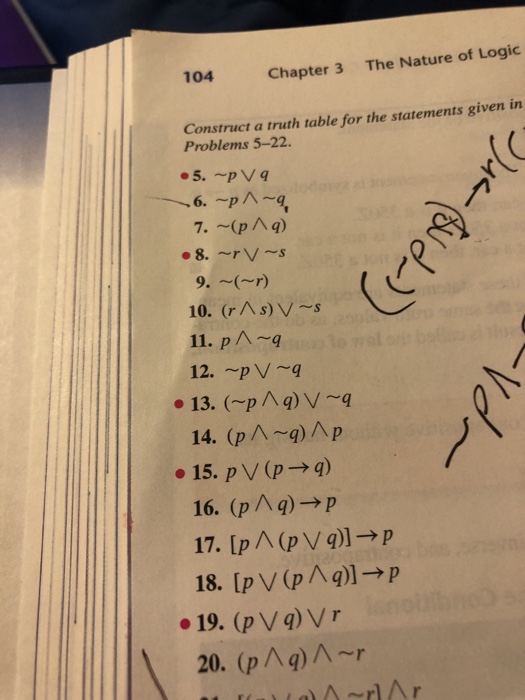 104 Chapter 3 The Nature of Logic
Construct a truth table for the statements given in
Problems 5–22.
•5. ~p ∨ q
6. ~p ∧ ~q
7. ~(p ∧ q)
•8. ~r ∨ ~s
9. ~(~r)
10. (r ∧ s) ∨ ~s
11. p ∧ ~q
12. ~p ∨ ~q
•13. (~p ∧ q) ∨ ~q
14. (p ∧ ~q) ∧ p
•15. p ∨ (p → q)
16. (p ∧ q) → p
17. [p ∧ (p ∨ q)] → p
18. [p ∨ (p ∧ q)] → p
•19. (p ∨ q) ∨ r
20. (p ∧ q) ∧ ~r